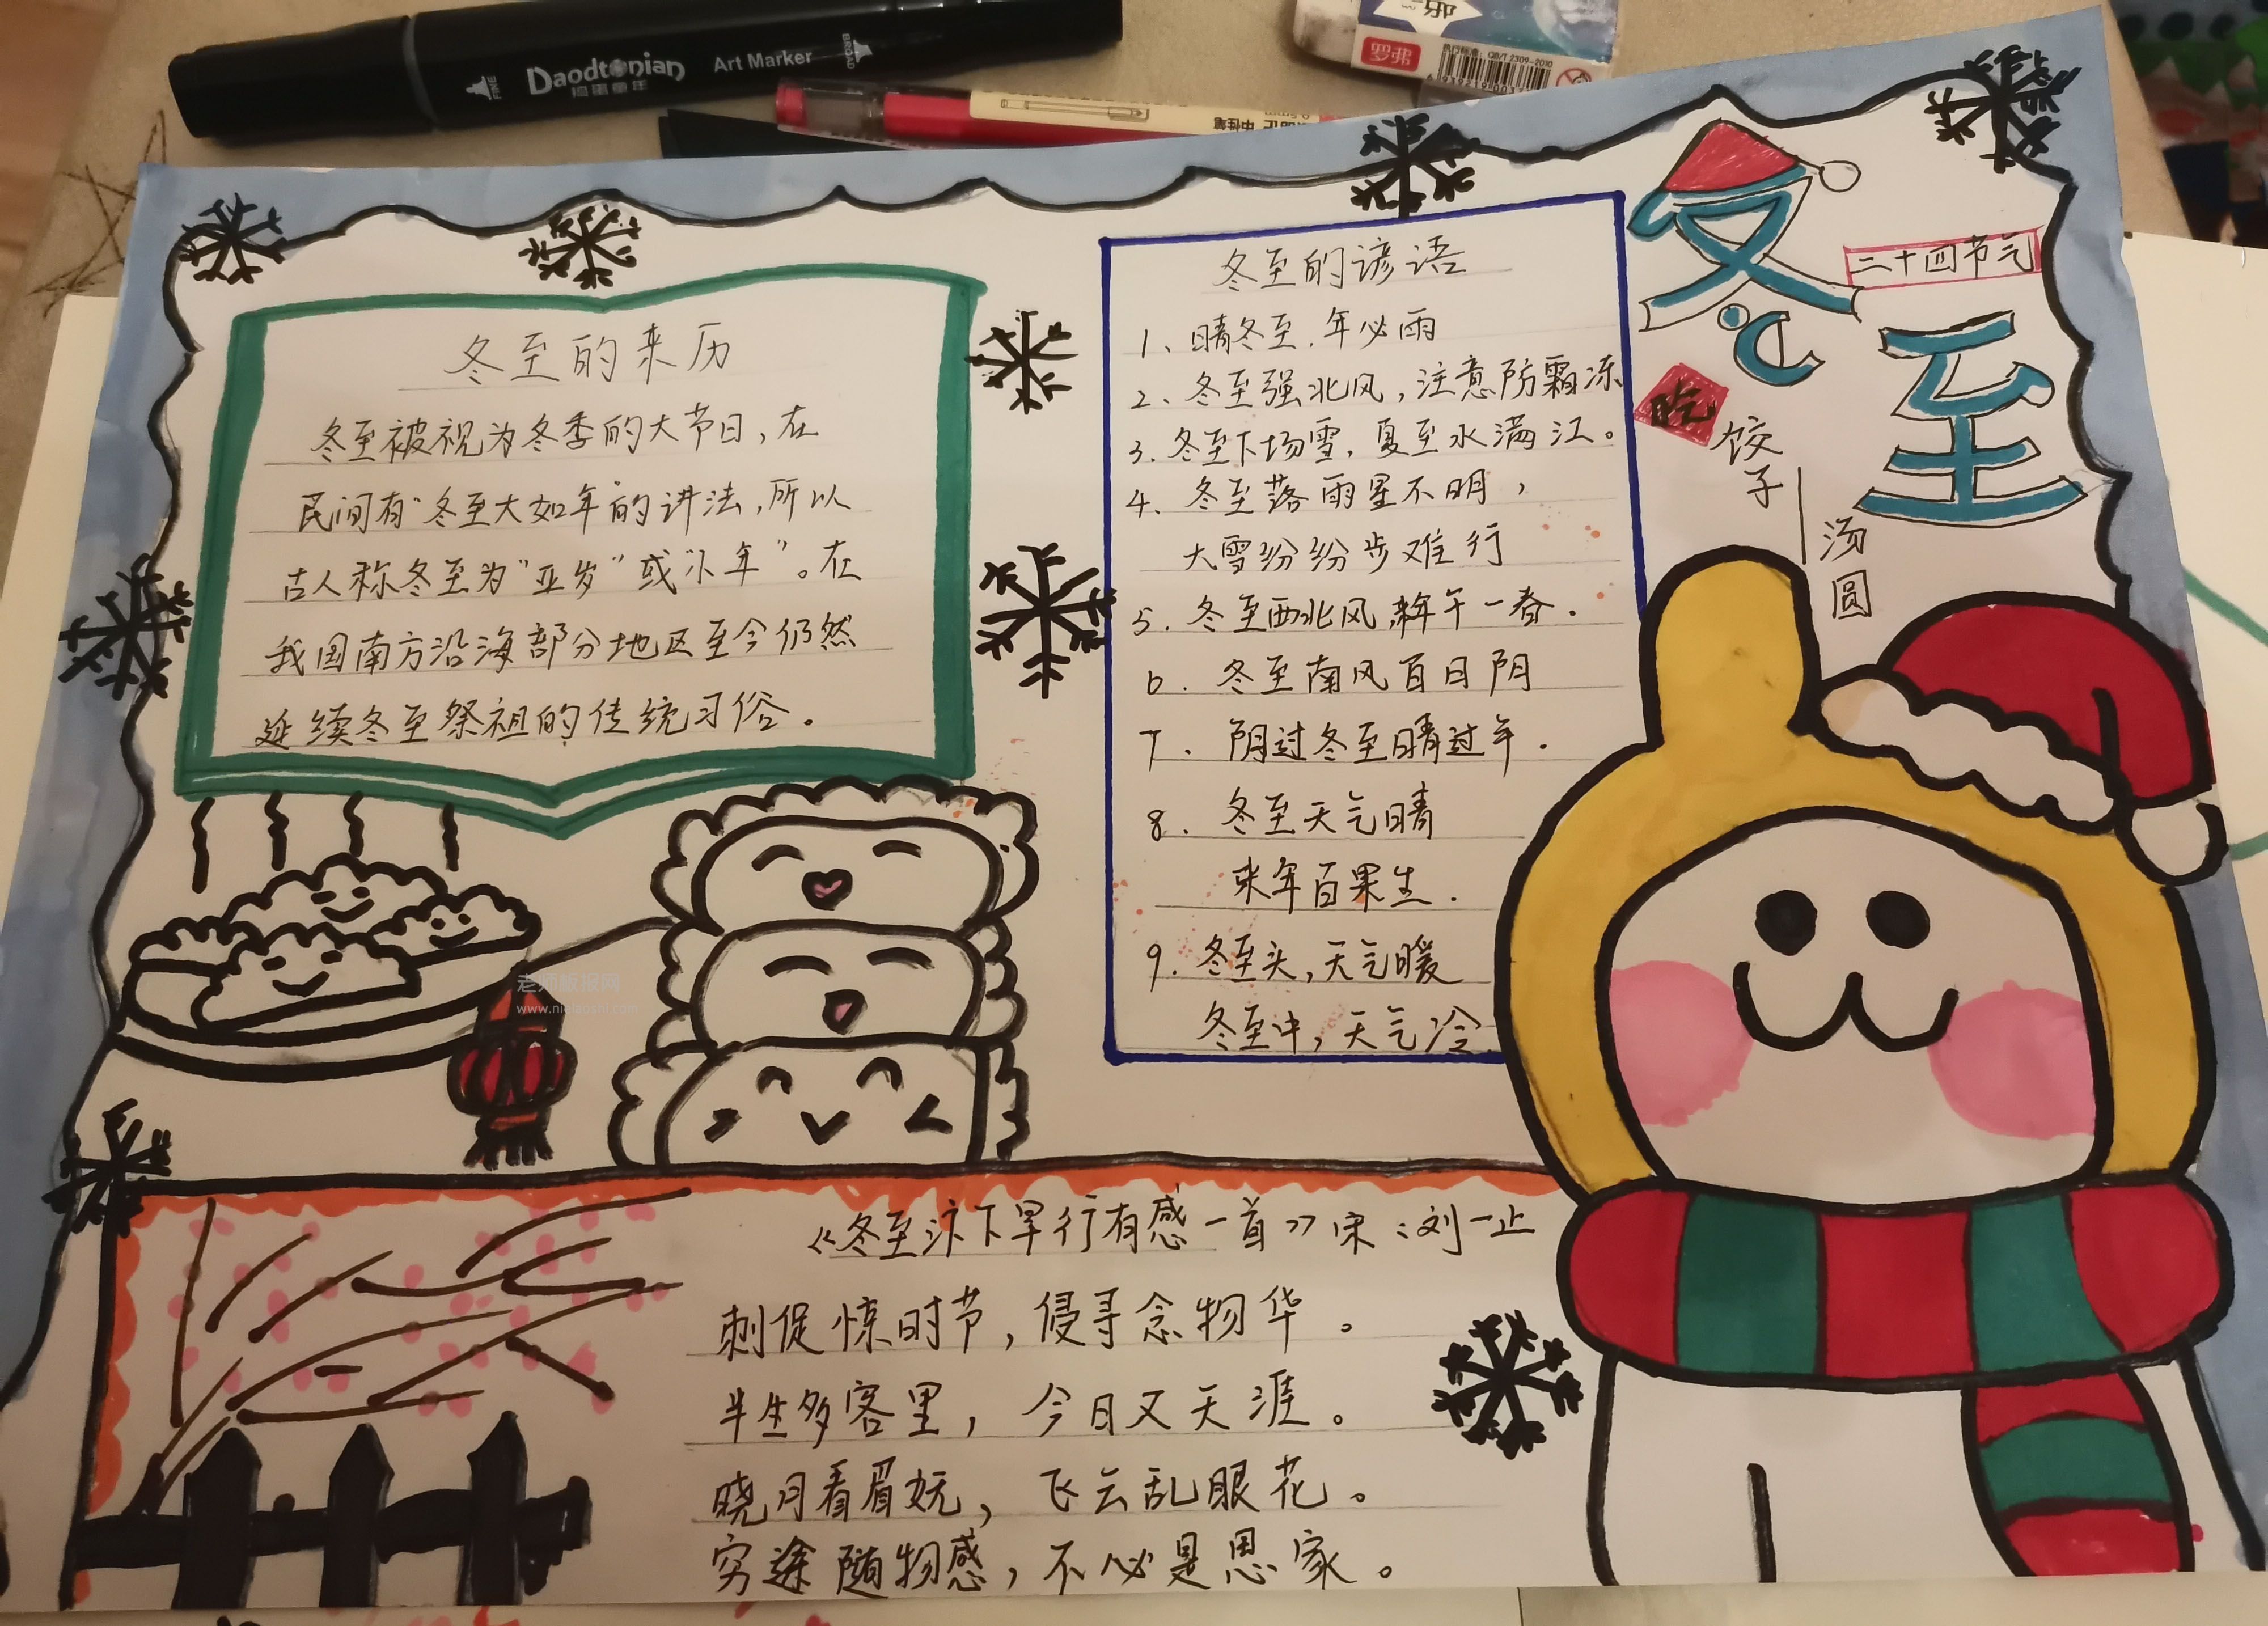 Daodtonian
Art Marker
FINE
BROAD
罗弗
执行标准: QB/T 2309-2010
冬至
二十四节气
吃
饺子
汤圆
冬至的来历
冬至被视为冬季的大节日，在
民间有“冬至大如年”的讲法，所以
古人称冬至为“亚岁”或“小年”。在
我国南方沿海部分地区至今仍然
延续冬至祭祖的传统习俗.
冬至的谚语
1、晴冬至.年必雨
2、冬至强北风，注意防霜冻
3.冬至下场雪，夏至水满江。
4、冬至落雨星不明，
大雪纷纷步难行
5.冬至西北风,来年干一春.
6.冬至南风百日阴
7.阴过冬至晴过年.
8.冬至天气晴
来年百果生.
9.冬至头,天气暖
冬至中,天气冷
老师板报网
《冬至汴下早行有感一首》宋:刘一止
刺促惊时节，侵寻念物华。
半生多客里，今日又天涯。
晓月看眉妩，飞云乱眼花。
穷途随物感，不必是思家。